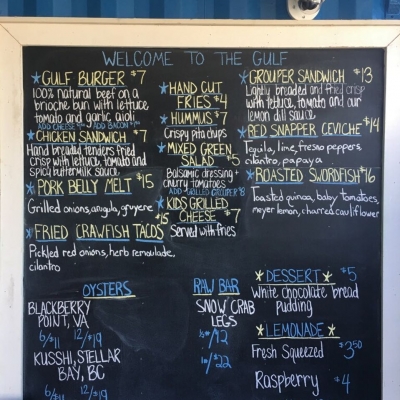 WELCOME TO THE GULF
GULF BURGER $7
100% natural beef on a
brioche bun with lettuce
tomato and garlic aioli
ADD CHEESE ADD BACON
CHICKEN SANDWICH $7
Hand breaded tenders fried
crisp with lettuce, tomato and
spicy buttermilk sauce
PORK BELLY MELT $15
Grilled onions, arugula, gruyere
$15
FRIED CRAWFISH TACOS
Pickled red onions, herb remoulade,
cilantro
HAND CUT
FRIES $4
HUMMUS $7
Crispy pita chips
MIXED GREEN
SALAD $5
Balsamic dressing +
cherry tomatoes
ADD GRILLED GROUPER $8
KIDS GRILLED
CHEESE $7
Served with fries
GROUPER SANDWICH $13
Lightly breaded and fried crisp
with lettuce, tomato and our
lemon dill sauce
RED SNAPPER CEVICHE $14
Tequila, lime, fresno peppers,
cilantro, papaya
ROASTED SWORDFISH $16
Toasted quinoa, baby tomatoes,
meyer lemon, charred cauliflower
OYSTERS
BLACKBERRY
POINT, VA
6/$11 12/$19
KUSSHI, STELLAR
BAY, BC
6/$11 12/$19
RAW BAR
SNOW CRAB
LEGS
DESSERT $5
White chocolate bread
pudding
LEMONADE
Fresh Squeezed $3.50
Raspberry $4